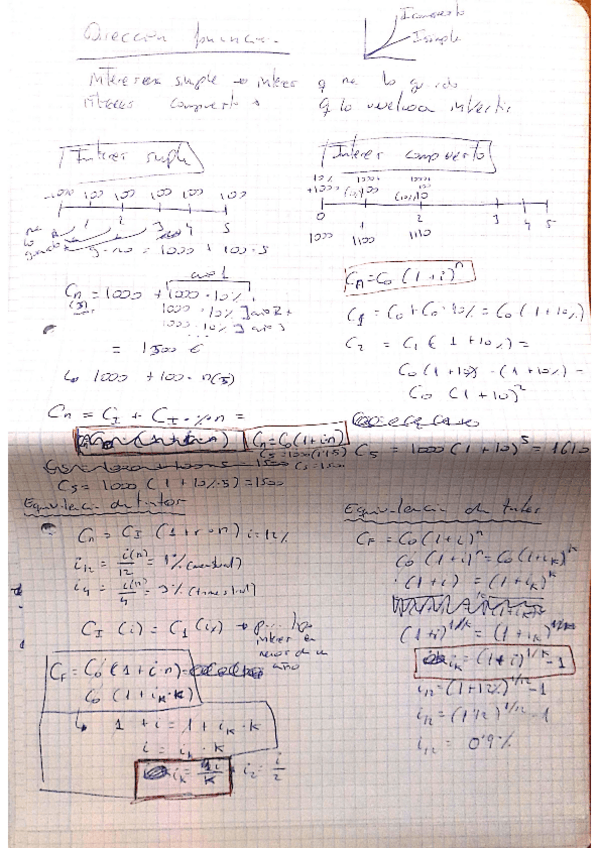 Dirección financiera
I compuesto
I simple
interes simple → interes q no lo guardo
interes compuesto → q lo vuelvo a invertir
Interes simple
1000 100 100 100 100 100
1 2 3 4 5
no lo guardo
1000 + 100 · 5
año 1
Cn = 1000 + 1000 · 10%
1000 · 10% ] año 2
1000 · 10% ] año 3
= 1500 €
1000 + 100 · n(5)
Cn = CI + CI · % n =
Cn = Co (1 + i·n)
C5 = 1500
C5 = 1000 (1 + 10% · 5) = 1500
Equivalencia de tantos
Cn = CI (1 + r · n) i = 12%
i12 = i(n)/12 = 1% (mensual)
i4 = i(n)/4 = 3% (trimestral)
CI (i) = C1 (ik) →
interes en
menos de un
año
CF = Co (1 + i · n)
Co (1 + ik · k)
1 + i = 1 + ik · k
i = ik · k
ik = i/k
i2 = i/2
Interes compuesto
0 1 2 3 4 5
1000 1100 1110
Cn = Co (1 + i)^n
C1 = Co + Co · 10% = Co (1 + 10%)
C2 = C1 (1 + 10%) =
Co (1 + 10%) · (1 + 10%) =
Co (1 + 10)^2
C5 = 1000 (1 + 10)^5 = 1610
Equivalencia de tantos
CF = Co (1 + i)^n
Co (1 + i)^n = Co (1 + ik)^k
(1 + i) = (1 + ik)^k
(1 + i)^1/k = (1 + ik)^k/k
ik = (1 + i)^1/k - 1
i12 = (1 + 12%)^1/12 - 1
i12 = (1'12)^1/12 - 1
i12 = 0'9%